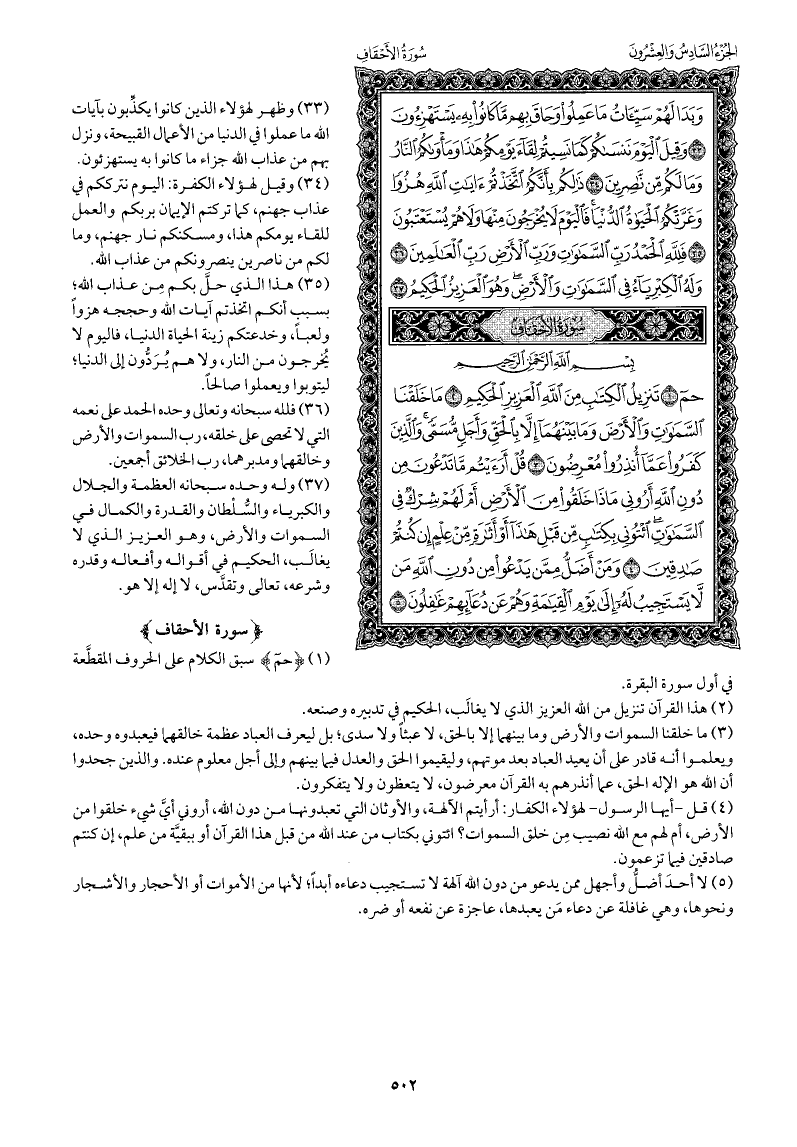 الجزء السادس والعشرون
سورة الأحقاف
وَبَدَا لَهُمْ سَيِّـَٔاتُ مَا عَمِلُوا۟ وَحَاقَ بِهِم مَّا كَانُوا۟ بِهِۦ يَسْتَهْزِءُونَ
٣٣ وَقِيلَ ٱلْيَوْمَ نَنسَىٰكُمْ كَمَا نَسِيتُمْ لِقَآءَ يَوْمِكُمْ هَٰذَا وَمَأْوَىٰكُمُ ٱلنَّارُ
وَمَا لَكُم مِّن نَّٰصِرِينَ ٣٤ ذَٰلِكُم بِأَنَّكُمُ ٱتَّخَذْتُمْ ءَايَٰتِ ٱللَّهِ هُزُوًا
وَغَرَّتْكُمُ ٱلْحَيَوٰةُ ٱلدُّنْيَا ۚ فَٱلْيَوْمَ لَا يُخْرَجُونَ مِنْهَا وَلَا هُمْ يُسْتَعْتَبُونَ
٣٥ فَلِلَّهِ ٱلْحَمْدُ رَبِّ ٱلسَّمَٰوَٰتِ وَرَبِّ ٱلْأَرْضِ رَبِّ ٱلْعَٰلَمِينَ ٣٦
وَلَهُ ٱلْكِبْرِيَآءُ فِى ٱلسَّمَٰوَٰتِ وَٱلْأَرْضِ ۖ وَهُوَ ٱلْعَزِيزُ ٱلْحَكِيمُ ٣٧
سُورَةُ الأَحْقَافِ
بِسْمِ ٱللَّهِ ٱلرَّحْمَٰنِ ٱلرَّحِيمِ
حمٓ ١ تَنزِيلُ ٱلْكِتَٰبِ مِنَ ٱللَّهِ ٱلْعَزِيزِ ٱلْحَكِيمِ ٢ مَا خَلَقْنَا
ٱلسَّمَٰوَٰتِ وَٱلْأَرْضَ وَمَا بَيْنَهُمَآ إِلَّا بِٱلْحَقِّ وَأَجَلٍ مُّسَمًّى ۚ وَٱلَّذِينَ
كَفَرُوا۟ عَمَّآ أُنذِرُوا۟ مُعْرِضُونَ ٣ قُلْ أَرَءَيْتُم مَّا تَدْعُونَ مِن
دُونِ ٱللَّهِ أَرُونِى مَاذَا خَلَقُوا۟ مِنَ ٱلْأَرْضِ أَمْ لَهُمْ شِرْكٌ فِى
ٱلسَّمَٰوَٰتِ ۖ ٱئْتُونِى بِكِتَٰبٍ مِّن قَبْلِ هَٰذَآ أَوْ أَثَٰرَةٍ مِّنْ عِلْمٍ إِن كُنتُمْ
صَٰدِقِينَ ٤ وَمَنْ أَضَلُّ مِمَّن يَدْعُوا۟ مِن دُونِ ٱللَّهِ مَن
لَّا يَسْتَجِيبُ لَهُۥٓ إِلَىٰ يَوْمِ ٱلْقِيَٰمَةِ وَهُمْ عَن دُعَآئِهِمْ غَٰفِلُونَ ٥
(٣٣) وظهر لهؤلاء الذين كانوا يكذِّبون بآيات
الله ما عملوا في الدنيا من الأعمال القبيحة، ونزل
بهم من عذاب الله جزاء ما كانوا به يستهزئون.
(٣٤) وقيل لهؤلاء الكفرة: اليوم نترككم في
عذاب جهنم، كما تركتم الإيمان بربكم والعمل
للقاء يومكم هذا، ومسكنكم نار جهنم، وما
لكم من ناصرين ينصرونكم من عذاب الله.
(٣٥) هذا الذي حلَّ بكم مِن عذاب الله؛
بسبب أنكم اتخذتم آيات الله وحججه هزواً
ولعباً، وخدعتكم زينة الحياة الدنيا، فاليوم لا
يُخرجون من النار، ولا هم يُرَدُّون إلى الدنيا؛
ليتوبوا ويعملوا صالحاً.
(٣٦) فلله سبحانه وتعالى وحده الحمد على نعمه
التي لا تحصى على خلقه، رب السموات والأرض
وخالقهما ومدبرهما، رب الخلائق أجمعين.
(٣٧) وله وحده سبحانه العظمة والجلال
والكبرياء والسُّلْطان والقدرة والكمال في
السموات والأرض، وهو العزيز الذي لا
يغالَب، الحكيم في أقواله وأفعاله وقدره
وشرعه، تعالى وتقدَّس، لا إله إلا هو.
﴿سورة الأحقاف﴾
(١) ﴿حمٓ﴾ سبق الكلام على الحروف المقطَّعة
في أول سورة البقرة.
(٢) هذا القرآن تنزيل من الله العزيز الذي لا يغالَب، الحكيم في تدبيره وصنعه.
(٣) ما خلقنا السموات والأرض وما بينهما إلا بالحق، لا عبثاً ولا سدى؛ بل ليعرف العباد عظمة خالقهما فيعبدوه وحده،
ويعلموا أنه قادر على أن يعيد العباد بعد موتهم، وليقيموا الحق والعدل فيما بينهم وإلى أجل معلوم عنده. والذين جحدوا
أن الله هو الإله الحق، عما أنذرهم به القرآن معرضون، لا يتعظون ولا يتفكرون.
(٤) قل -أيها الرسول- لهؤلاء الكفار: أرأيتم الآلهة، والأوثان التي تعبدونها من دون الله، أروني أيَّ شيء خلقوا من
الأرض، أم لهم مع الله نصيب مِن خلق السموات؟ ائتوني بكتاب من عند الله من قبل هذا القرآن أو ببقيَّة من علم، إن كنتم
صادقين فيما تزعمون.
(٥) لا أحدَ أضلُّ وأجهل ممن يدعو من دون الله آلهة لا تستجيب دعاءه أبداً؛ لأنها من الأموات أو الأحجار والأشجار
ونحوها، وهي غافلة عن دعاء مَن يعبدها، عاجزة عن نفعه أو ضره.
٥٠٢